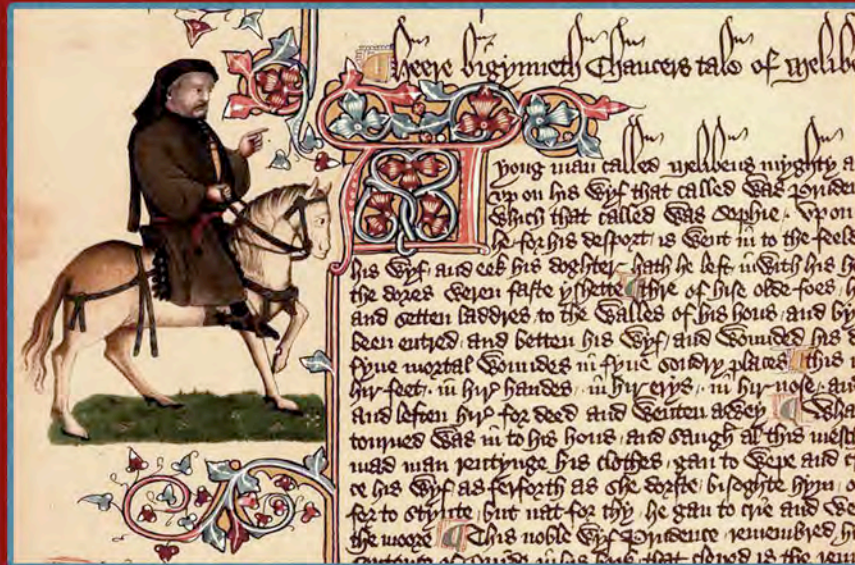 Heere bigynneth Chaucers tale of Melibe
yong man called Melibeus myghty a
vp on his wyf that called was Pruden
which that called was Sophie . vpon
he for his desport is went in to the feeld
his wyf and eek his doghter hath he left in with his h
the dores weren faste yshette thre of hise olde foes h
and setten laddres to the walles of his hous and by
been entred and betten his wyf and wounded his d
fyue mortal woundes in fyue sondry places this
hir feet . in hir handes . in hir erys . in hir nose . and
and leften hir for deed and wenten awey Wha
tourned was in to his hous and saugh al this mesch
mad man rentynge his clothes gan to wepe and c
ce his wyf as ferforth as she dorste bisoghte hym o
for to stynte but nat for thy he gan to crie and we
the moore This noble wyf Prudence remembred h